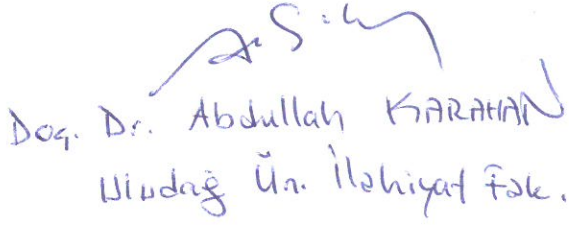 Doç. Dr. Abdullah KARAHAN
Uludağ Ün. İlahiyat Fak.